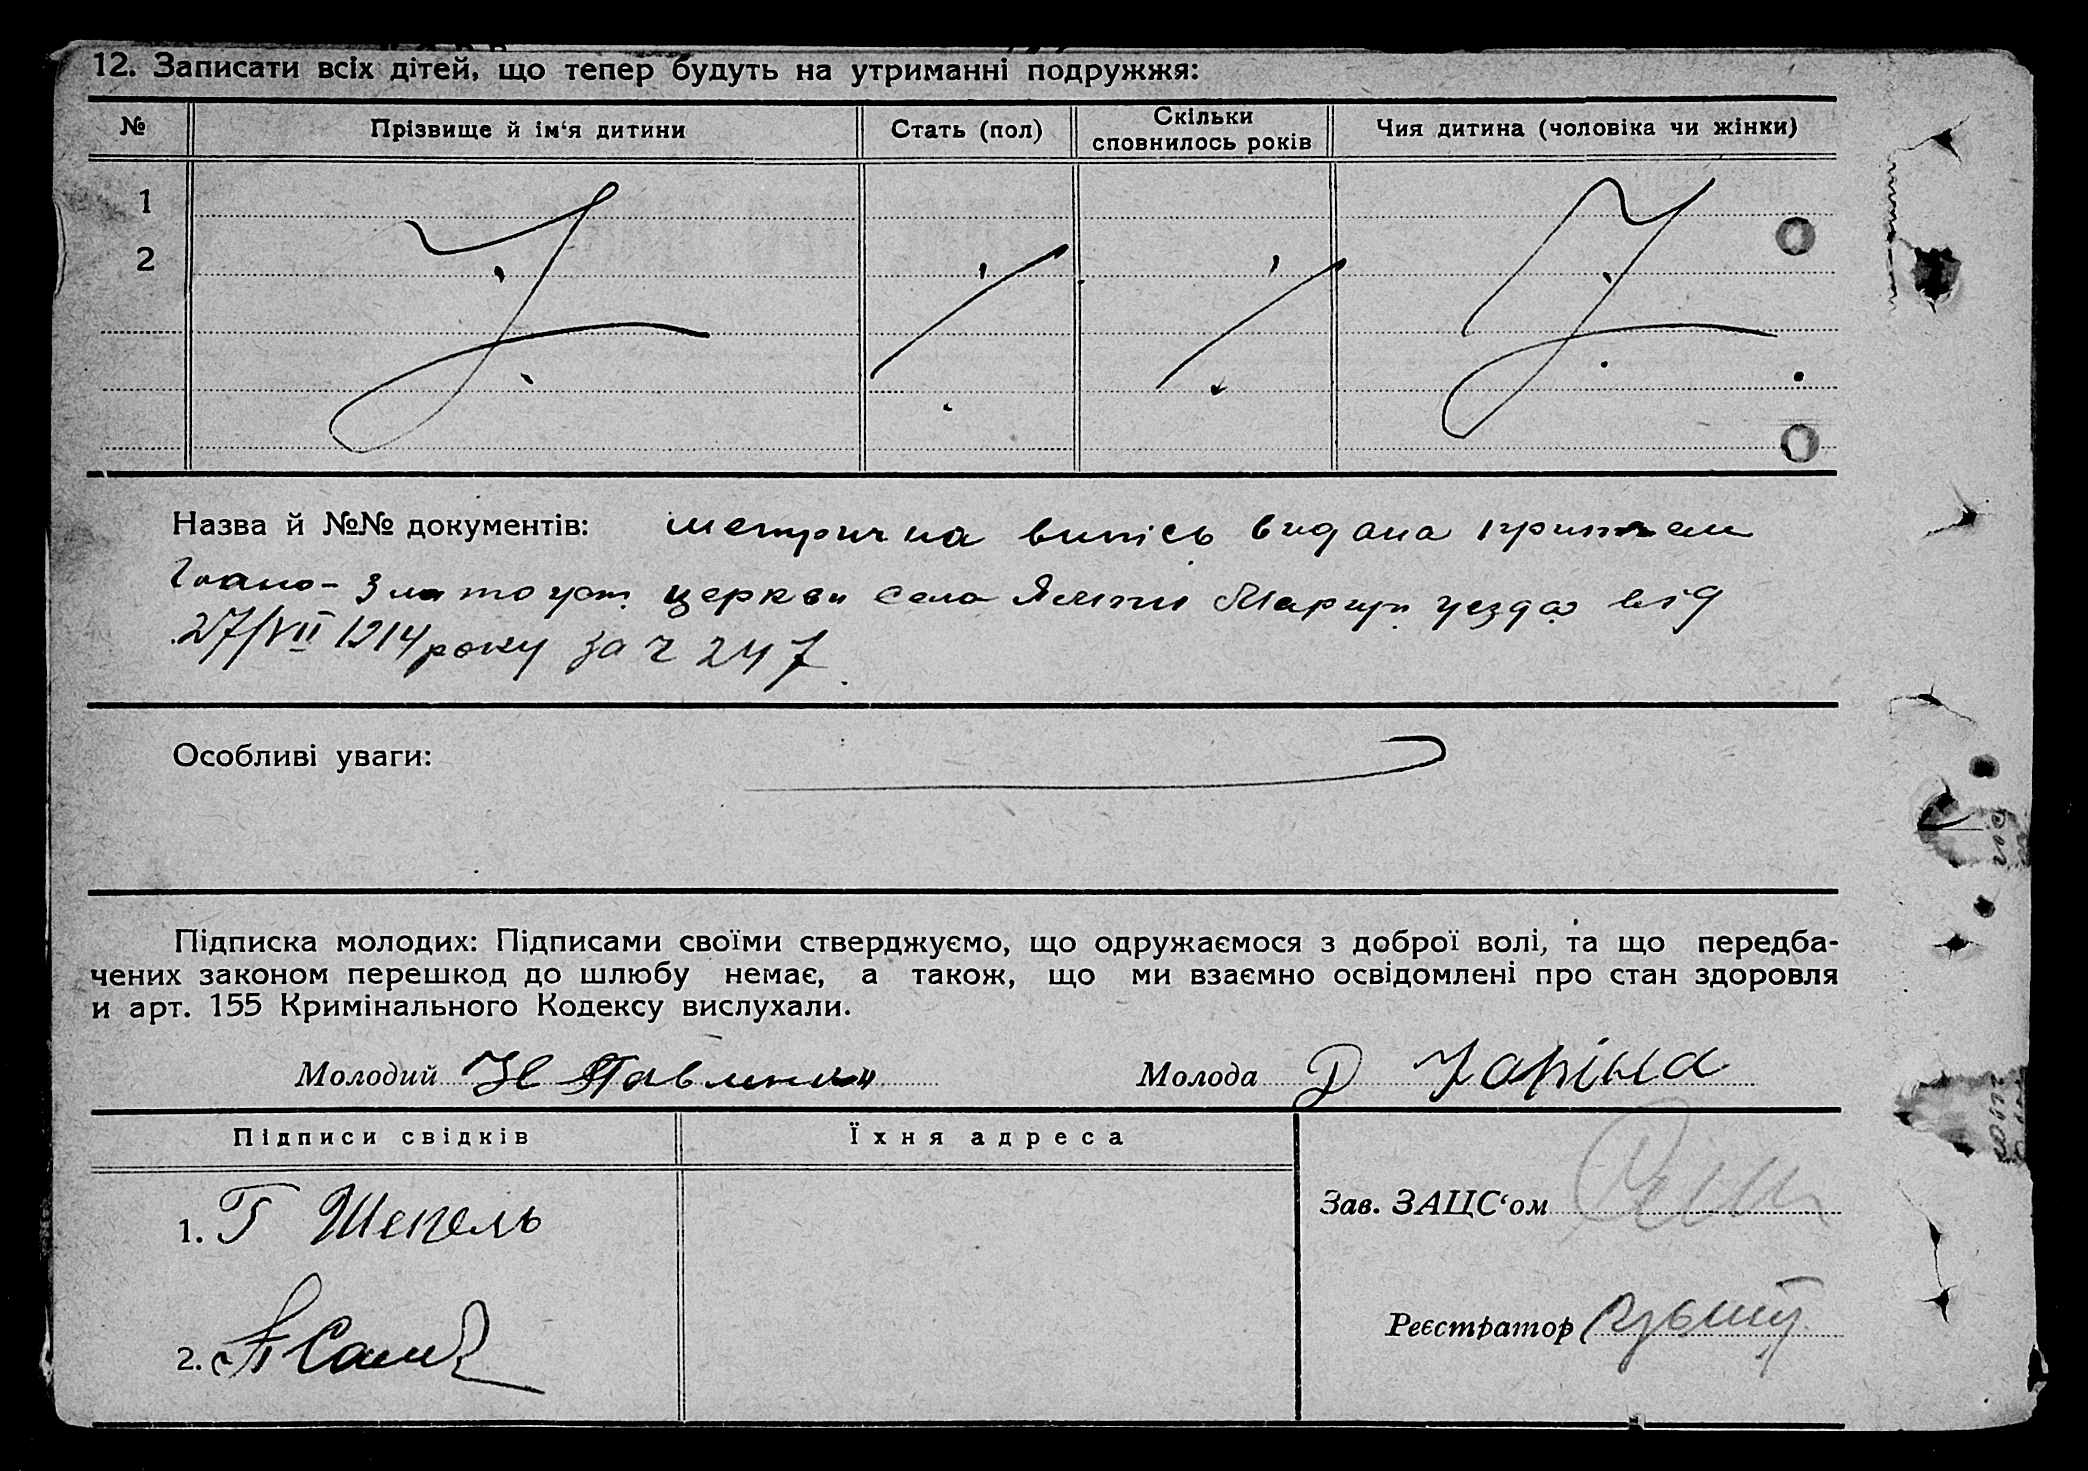 12. Записати всіх дітей, що тепер будуть на утриманні подружжя:
№ Прізвище й ім‘я дитини Стать (пол) Скільки сповнилось років Чия дитина (чоловіка чи жінки)
1
2
Назва й №№ документів: метрична випісь видана причтом
Іоано-Златоуст. церкви села Ялти Мариуп. уезда від
27/VII 1914 року за ч 247.
Особливі уваги:
Підписка молодих: Підписами своїми стверджуємо, що одружаємося з доброї волі, та що передба-
чених законом перешкод до шлюбу немає, а також, що ми взаємно освідомлені про стан здоровля
и арт. 155 Кримінального Кодексу вислухали.
Молодий Молода
Підписи свідків Їхня адреса
1. Г Шепель Зав. ЗАЦС‘ом
Реєстратор
2.